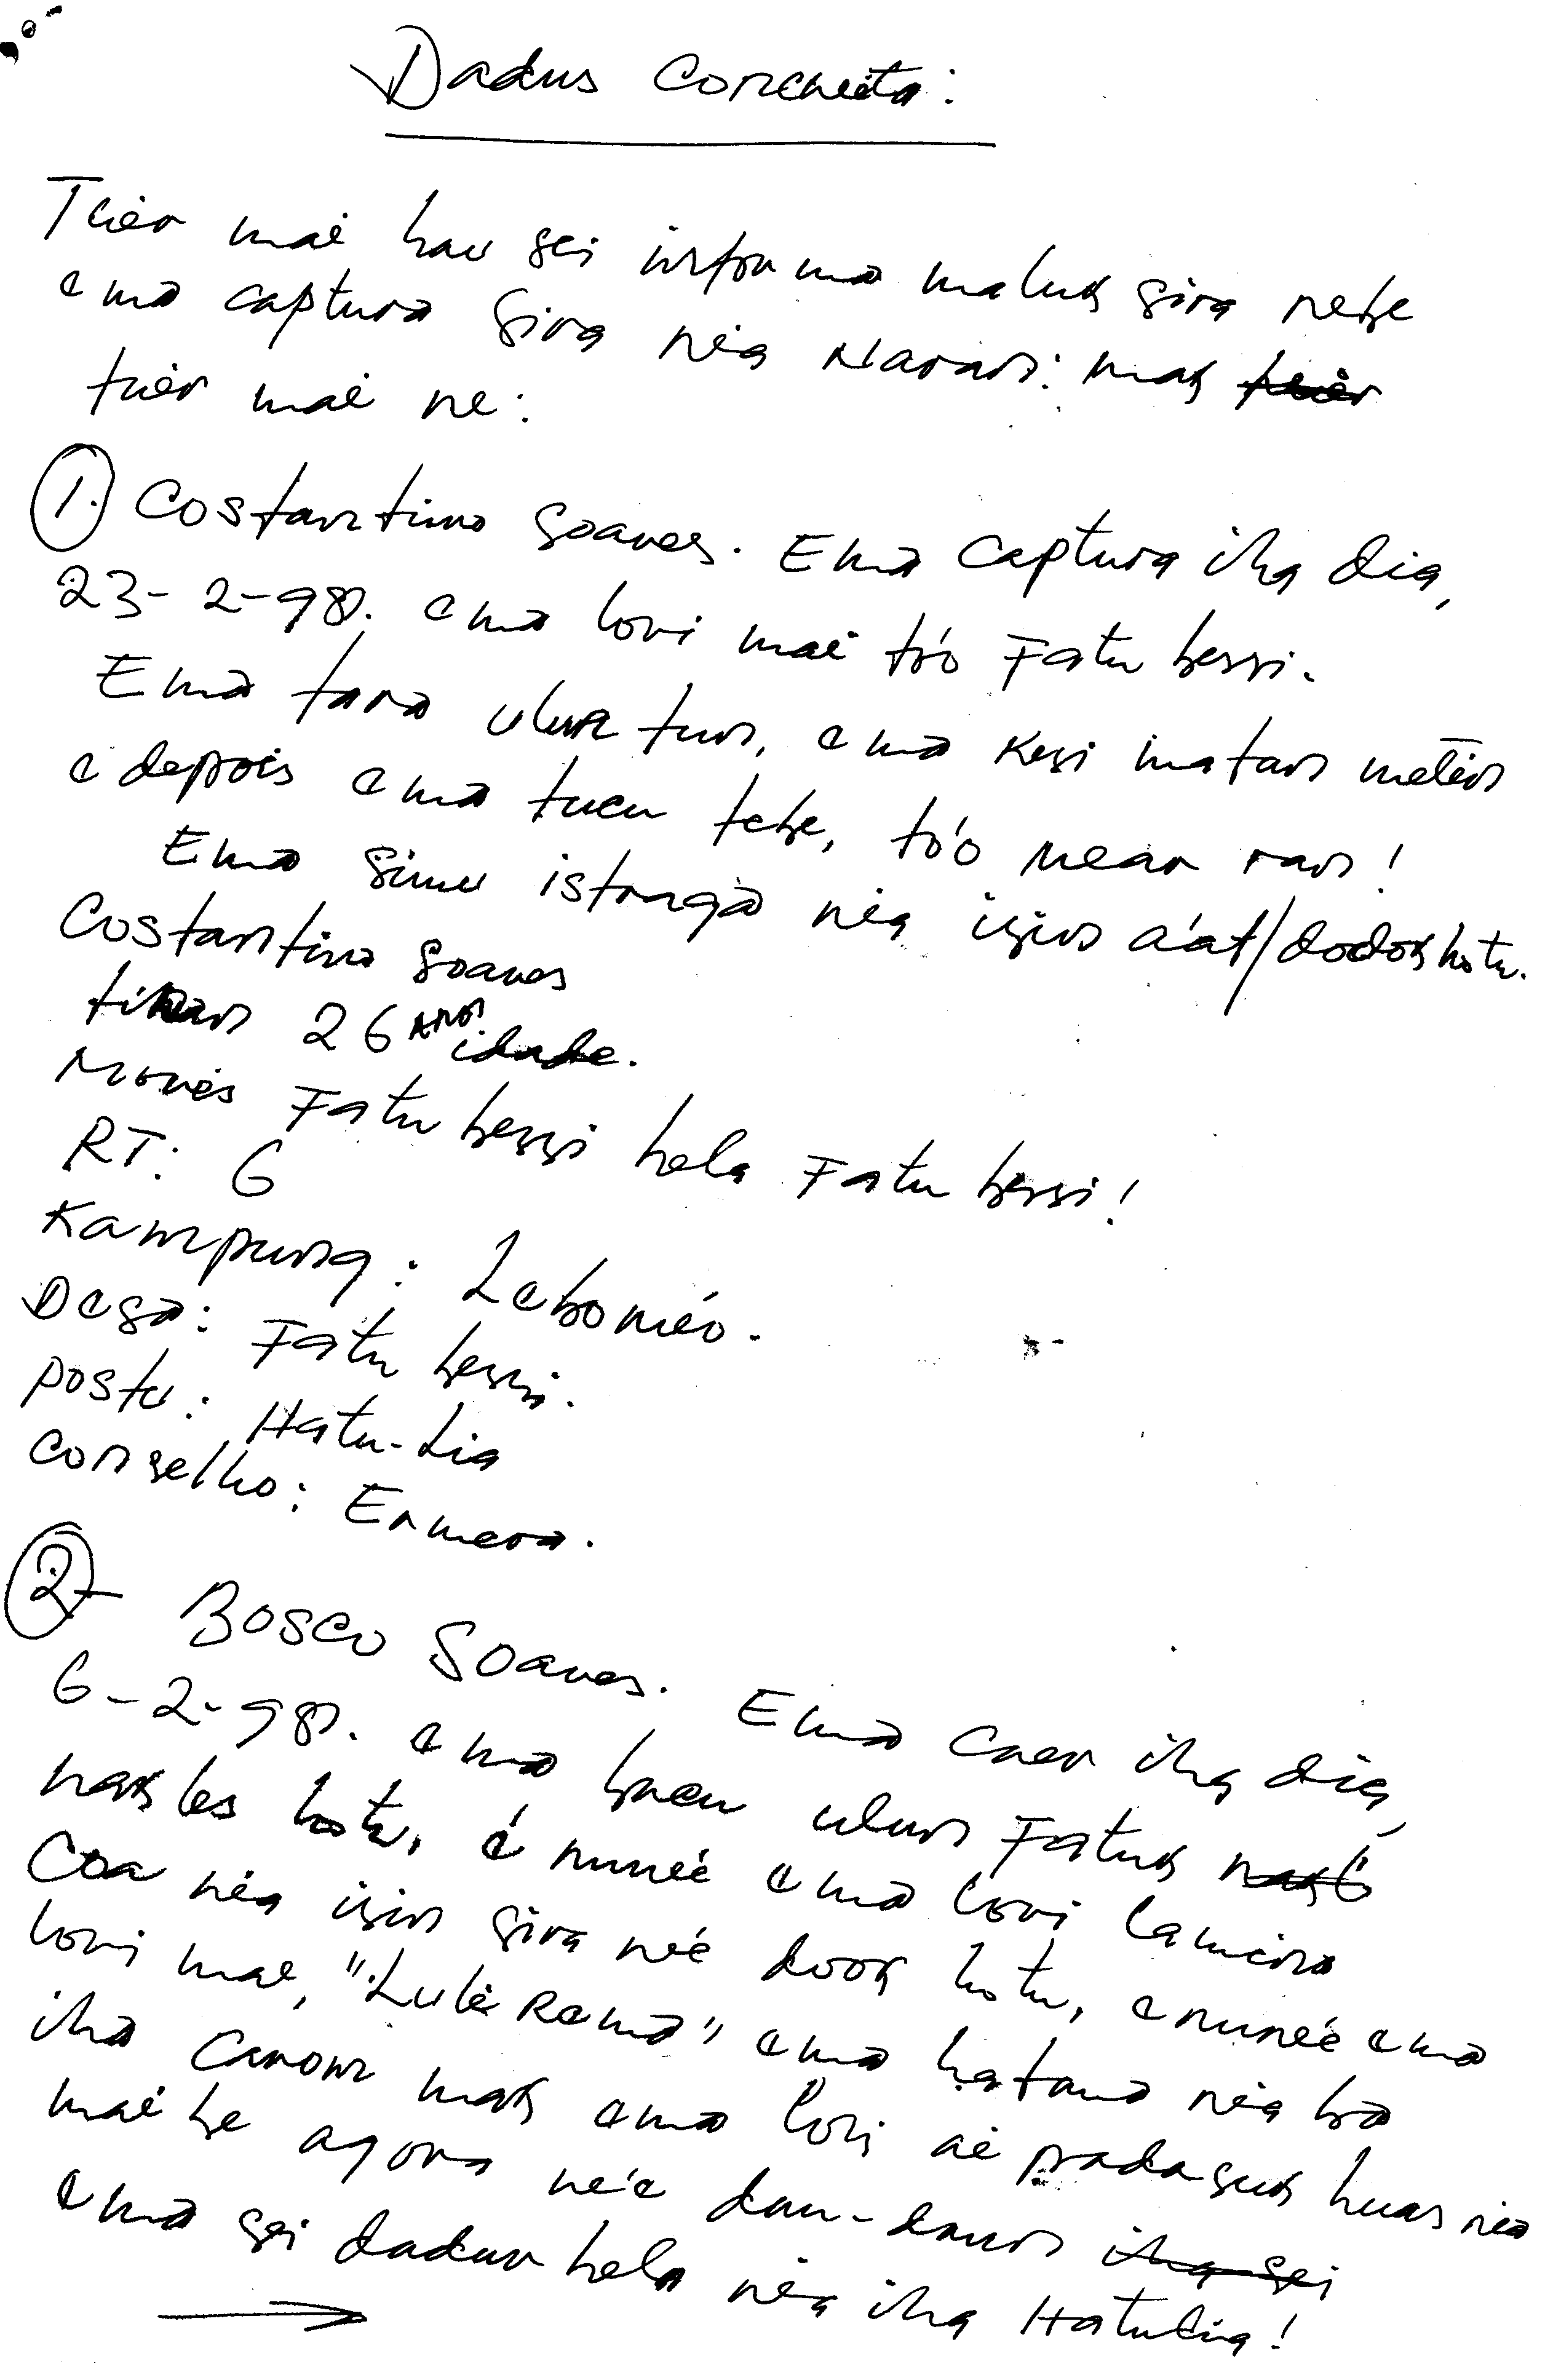 Dadus Concreita:
Tuir mai hau sei informa maluk sira nebe
ema captura sira nia naran: mak tuir
tuir mai ne:
1. Costantino Soares. Ema captura iha dia,
23-2-98. ema lori mai tó'o Fatu bessi.
Ema tara ulun tun, ema kesi matan metin
e depois ema tucu tebe, tó'o near ran!
Ema simu istraga nia isin a'at/dodok hotu.
Costantino Soares
tinan 26 anos idade.
Moris Fatu bessi hela Fatu bessi!
RT: 6
Kampung: Leboméo.
Desa: Fatu bessi.
Postu: Hatu-Lia
Conselho: Ermera.
2- Bosco Soares. Ema caer iha dia,
6-2-98. ema bacu ulun Fatuk
nakles hotu, é nune'e ema lori lamina
coa nia isin sira ne'e dook hotu, enune'e ema
lori mai, "Lulirema" ema hatama nia ba
iha Canom mak ema lori ai pradasuk huas nia
maibe agora ne'e dau-daun iha sei
ema sei dadur hela nia iha Hatulia!